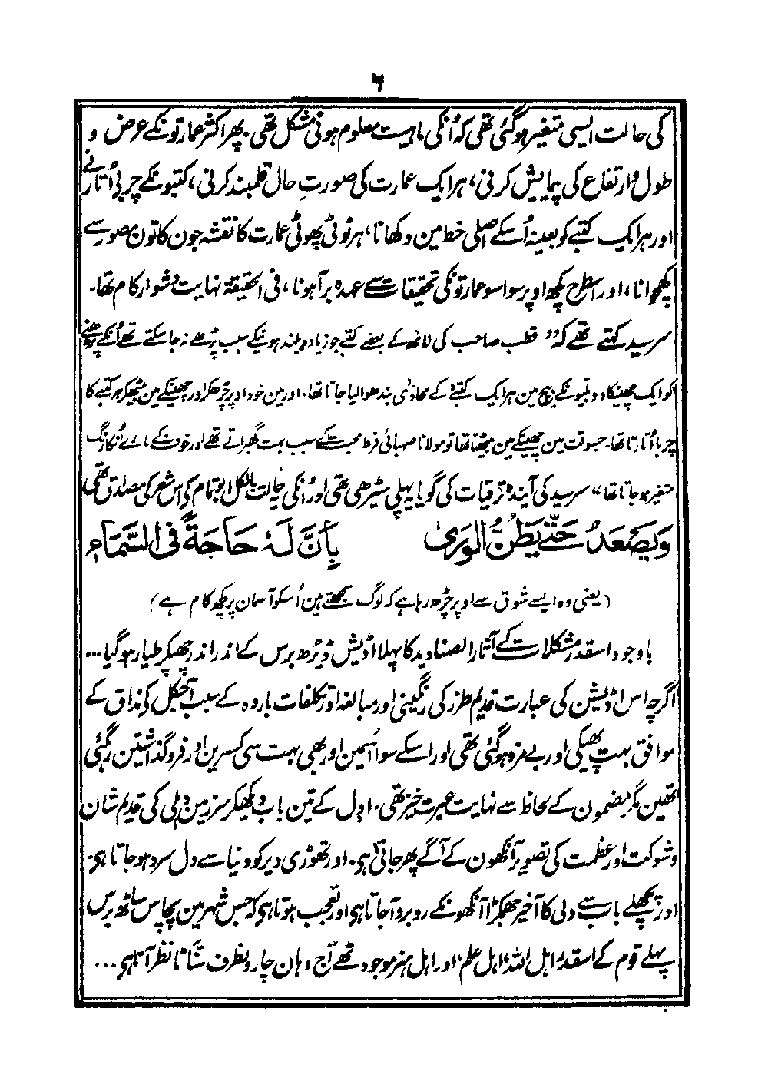 ٦
کی حالت ایسی متغیر ہوگئی تھی کہ اُنکی ماہیت معلوم ہونی مشکل تھی۔ پھر اکثر عمارتونکے عرض و
طول و ارتفاع کی پیمایش کرنی، ہر ایک عمارت کی صورتِ حال قلمبند کرنی، کتبونکے چربے اُتارنے
اور ہر ایک کتبے کو بعینہٖ اُسکے اصلی خط مین دکھانا، ہر ٹوٹی پھوٹی عمارت کا نقشہ جون کا تون مصور سے
کھچوانا، اور اسطرح کچھ اوپر سوا سو عمارتونکی تحقیقات سے عہدہ برآ ہونا، فی الحقیقۃ نہایت دشوار کام تھا۔
سرسید کہتے تھے کہ "قطب صاحب کی لاٹھ کے بعضے کتبے جو زیادہ بلند ہونیکے سبب پڑھے نہ جا سکتے تھے اُنکے پڑھنے
کو ایک چھینکا دو بلیونکے بیچ مین ہر ایک کتبے کے محاذی بندھوا لیا جاتا تھا۔ اور مین خود اوپر چڑھکر اور چھینکے مین بیٹھکر ہر کتبے کا
چربا اُتارتا تھا۔ جسوقت مین چھینکے مین بیٹھتا تھا تو مولانا صہبائی فرطِ محبت کے سبب بہت گھبراتے تھے اور خوف کے مارے اُنکا رنگ
متغیر ہو جاتا تھا" سرسید کی آیندہ ترقیات کی گویا یہ پہلی سیڑھی تھی اور اُنکی حالت بالکل ابوتمام کی اس شعر کی مصداق تھی
وَیَصْعَدُ حَتّٰی یَظُنُّ الْوَرٰی بِأَنَّ لَہٗ حَاجَۃً فِی السَّمَاءِ
(یعنی وہ ایسے شوق سے اوپر چڑھ رہا ہے کہ لوگ سمجھتے مین اُسکو آسمان پر کچھ کام ہے)
باوجود اسقدر مشکلات کے آثار الصنادید کا پہلا اڈیشن ڈیڑھ برس کے اندر اندر چھپکر طیار ہوگیا...
اگرچہ اس اڈیشن کی عبارت قدیم طرز کی رنگینی اور مبالغہ اور تکلفات باردہ کے سبب آجکل کی مذاق کے
موافق بہت پھیکی اور بے مزہ ہوگئی تھی اور اسکے سوا اُسمین اور بھی بہت سی کسرین اور فروگذاشتین رہگئی
تھین مگر مضمون کے لحاظ سے نہایت عبرت خیز تھی۔ اول کے تین باب دیکھکر سرزمین دہلی کی قدیم شان
و شوکت اور عظمت کی تصویر آنکھون کے آگے پھر جاتی ہی۔ اور تھوڑی دیر کو دنیا سے دل سرد ہو جاتا ہی۔
اور پچھلے باب سے دلی کا آخیر جھمکڑا آنکھونکے روبرو آجاتا ہی اور تعجب ہوتا ہی کہ جس شہر مین پچاس ساٹھ برس
پہلے قوم کے اسقدر اہل اللہ اہل علم اور اہل ہنر موجود تھے آج وہان چارونطرف سناٹا نظر آتا ہی...